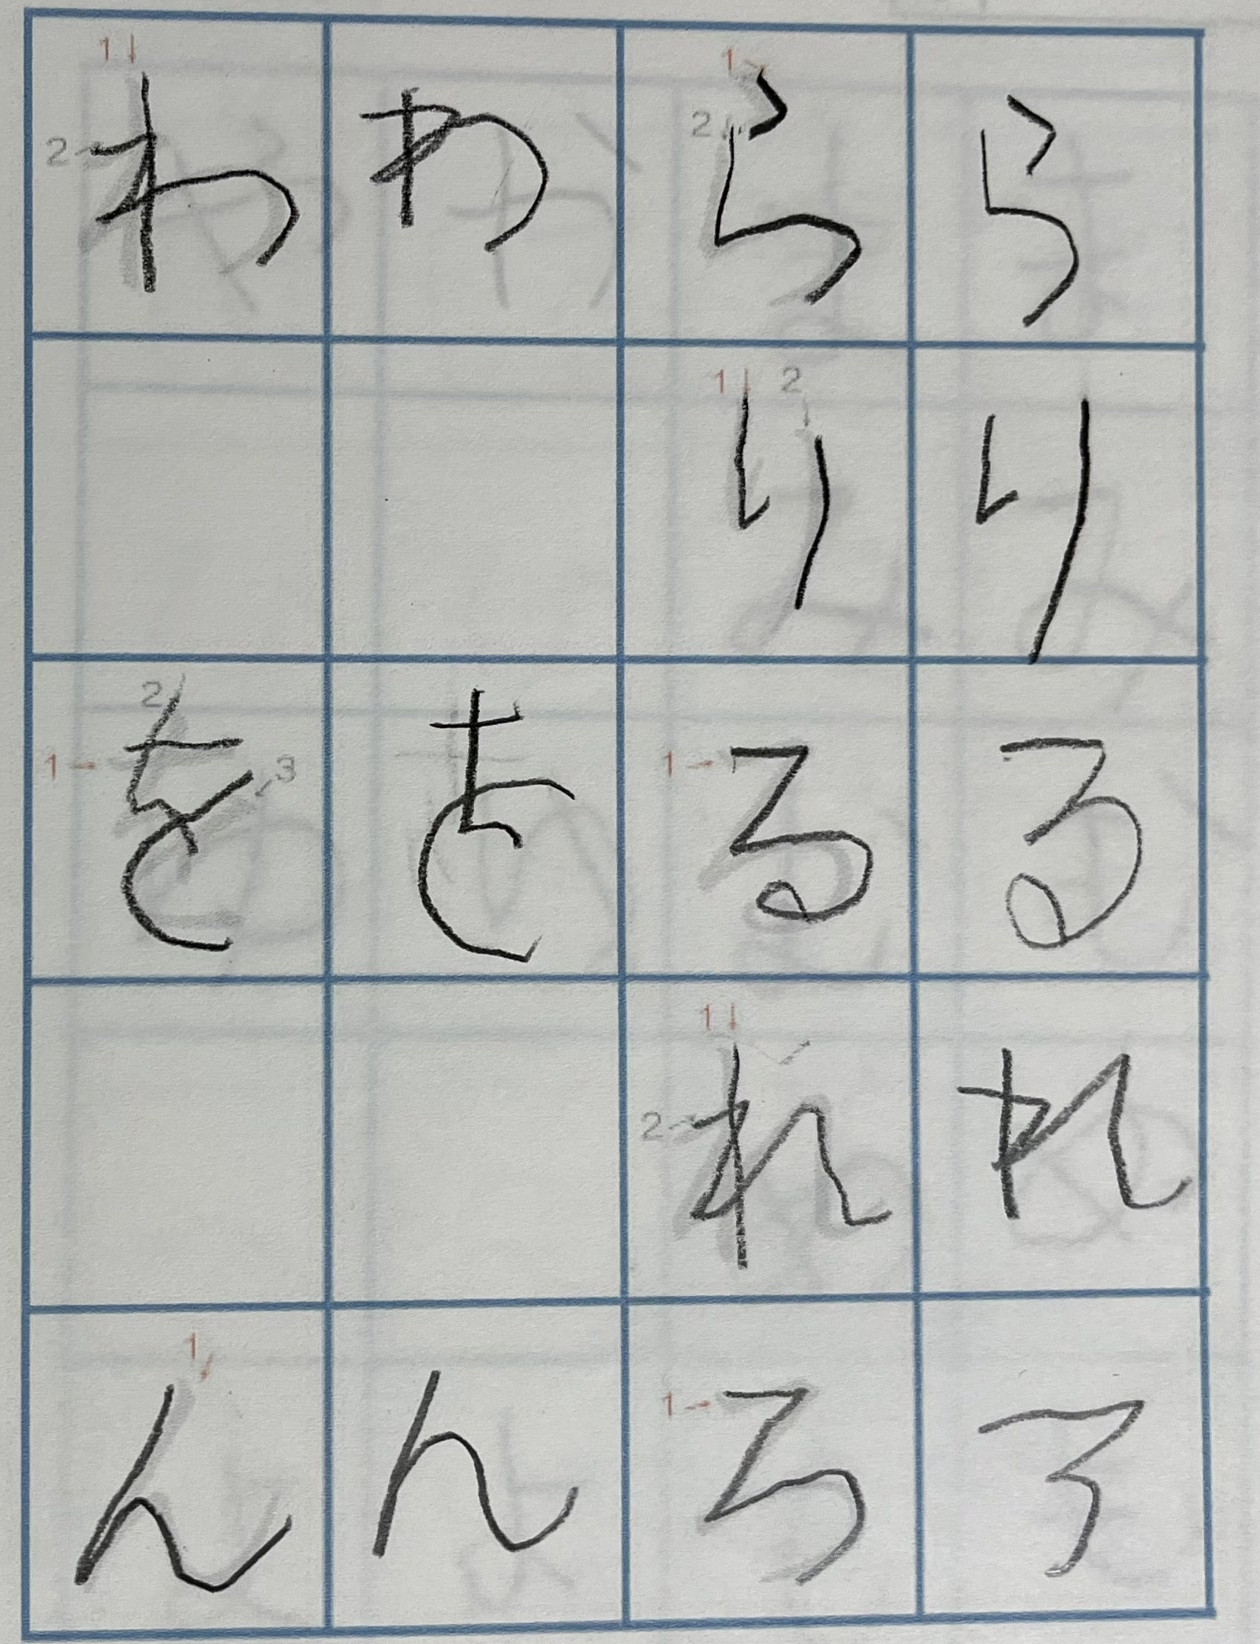 1 2 わ わ 1 2 ら ら
1 2 り り
1 2 3 を を 1 る る
1 2 れ れ
1 ん ん 1 ろ ろ